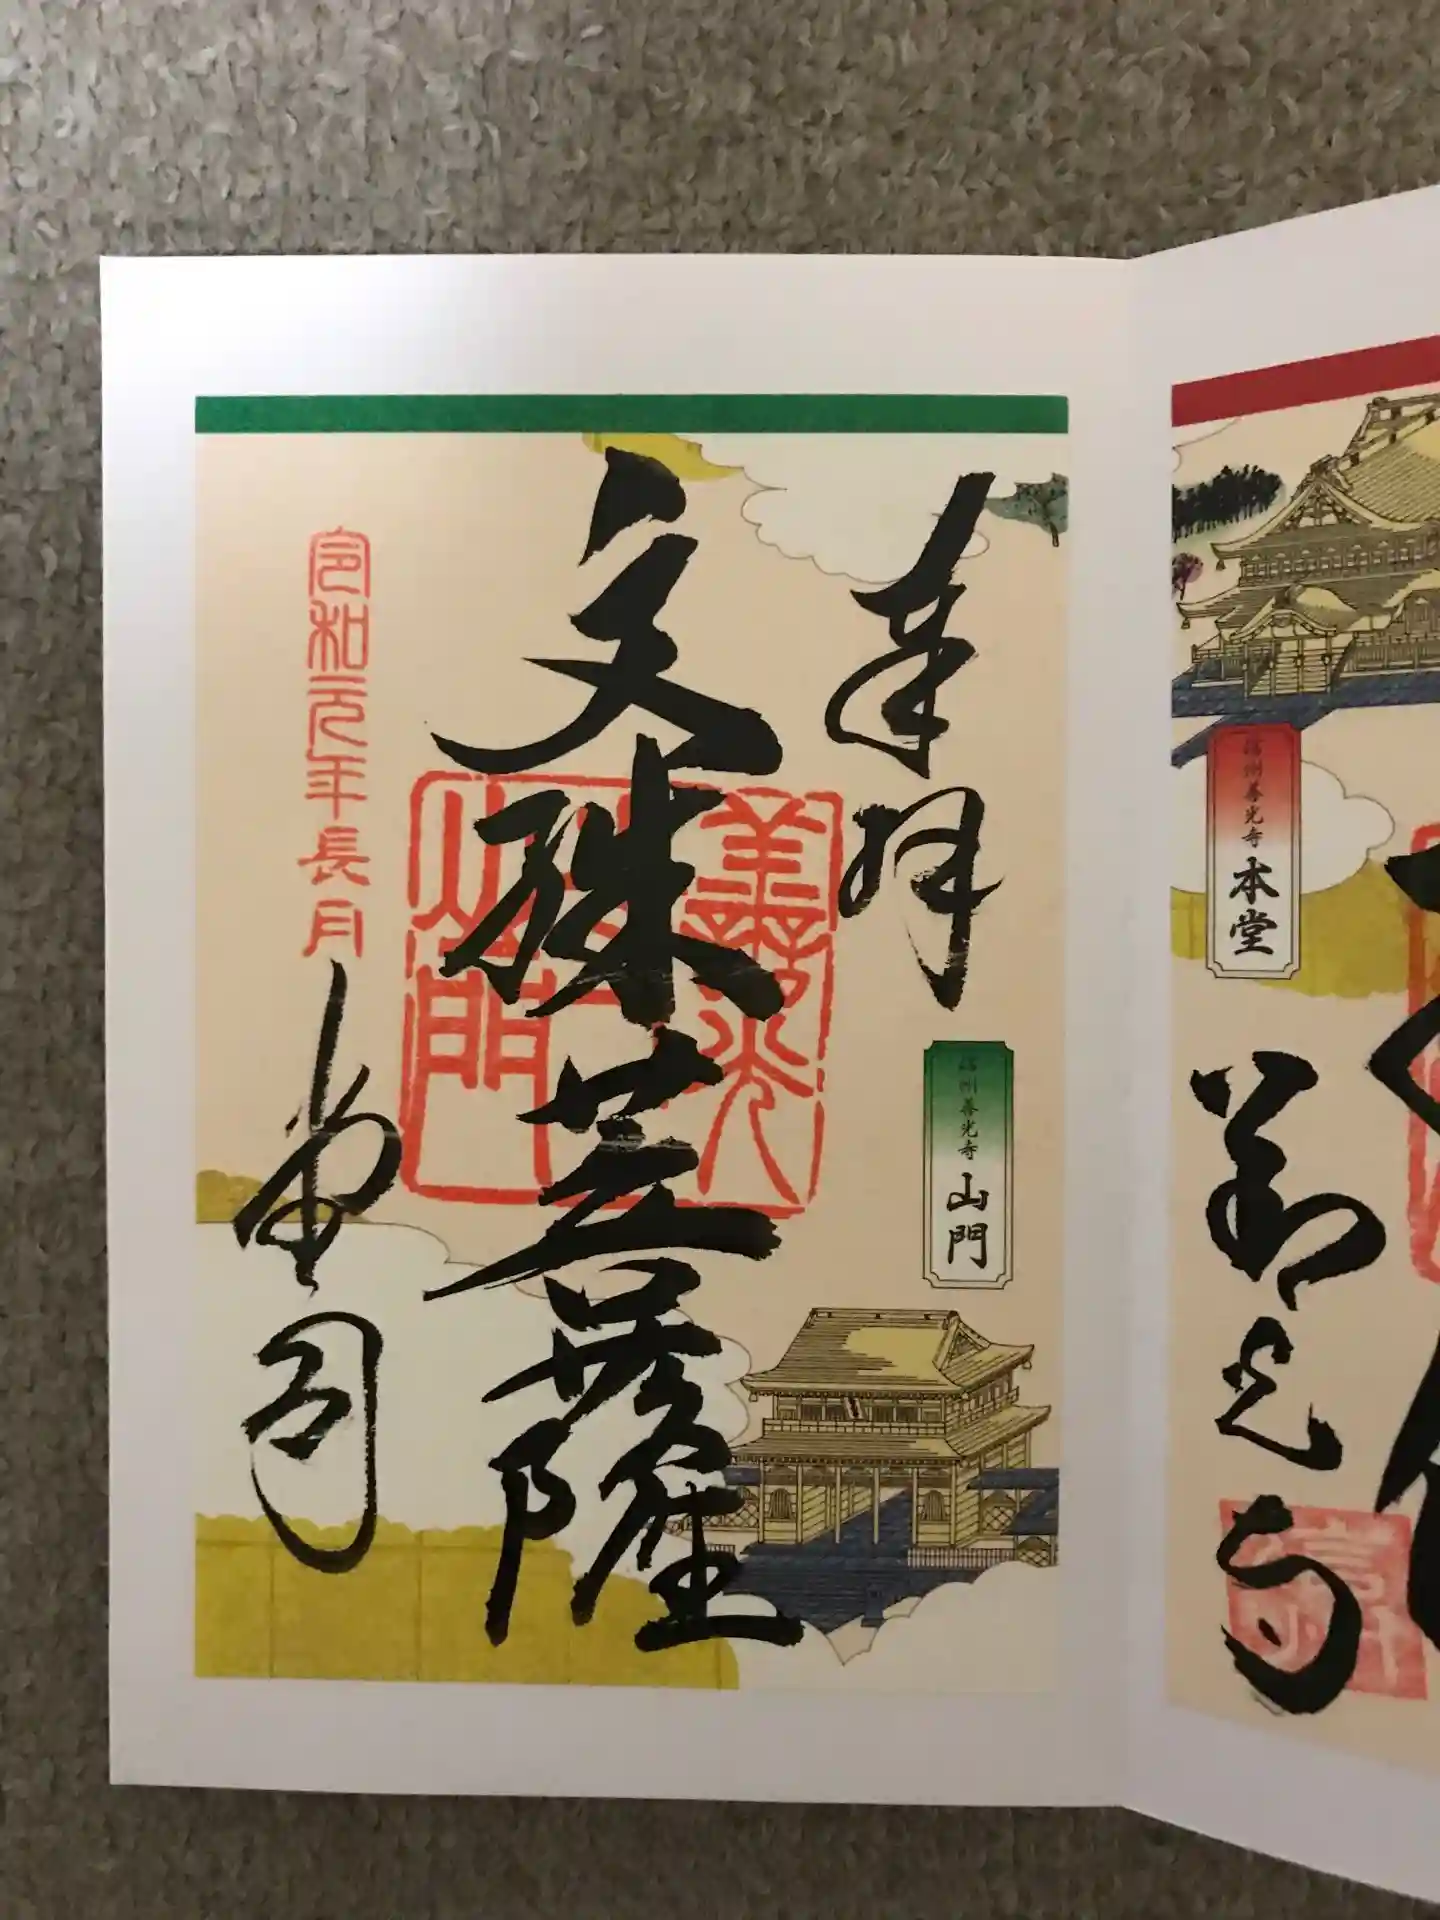 奉拝
信州善光寺
山門
文殊菩薩
善光寺
山門
令和元年長月
堂司
信州善光寺
本堂
善光寺